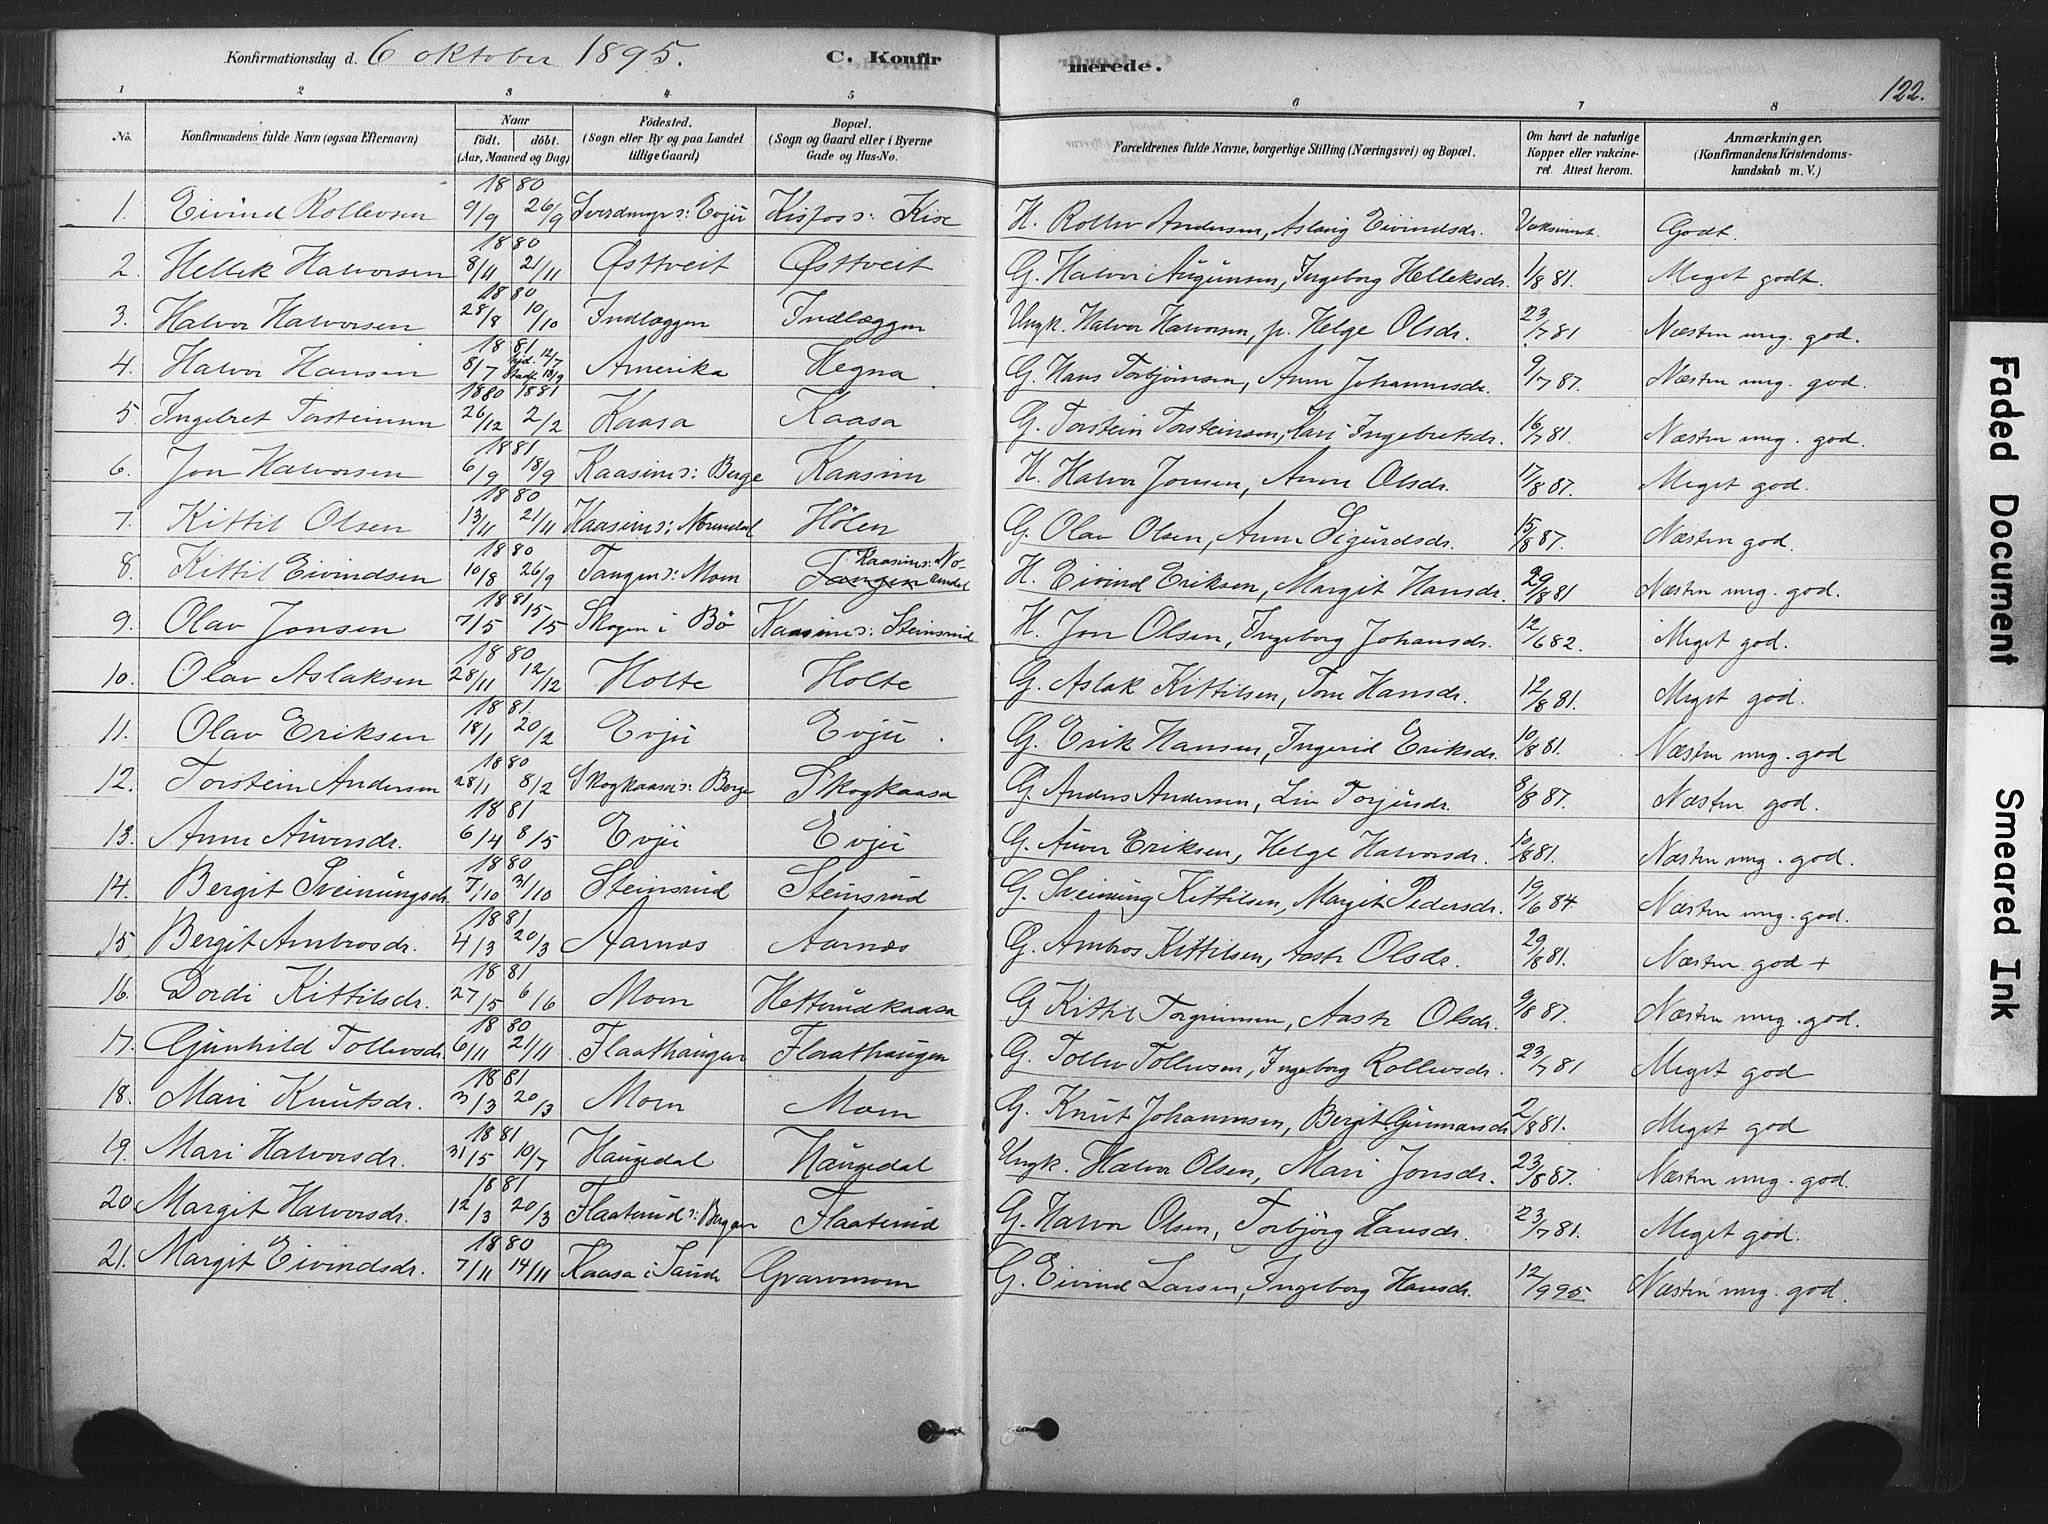 Konfirmationsdag d. 6 oktober 1895. C. Konfirmerede. 122.
1 2 3 4 5 6 7 8
No. Konfirmandens fulde Navn (ogsaa Efternavn) Naar født. døbt. (Aar, Maaned og Dag) Fødested. (Sogn eller By og paa Landet tillige Gaard) Bopæl. (Sogn og Gaard eller i Byerne Gade og Hus-No. Forældrenes fulde Navne, borgerlige Stilling (Næringsvei) og Bopæl. Om havt de naturlige Kopper eller vakcineret. Attest herom. Anmærkninger. (Konfirmandens Kristendomskundskab m. V.)
1. Eivind Rollevsen 1880 9/9 26/9 Sverdmyr s: Evju Kisfos s: Kise H. Rollev Andersen, Aslaug Eivindsdr. Godt.
2. Hellek Halvorsen 1880 8/11 21/11 Østtveit Østtveit G. Halvor Augunsen, Ingeborg Helleksdr. 1/8 81. Meget godt.
3. Halvor Halvorsen 1880 28/8 10/10 Indlæggen Indlæggen Ungk. Halvor Halvorsen, p. Helge Olsdr. 23/7 81 Næsten mg. god.
4. Halvor Hansen 1881 8/7 hjd. 12/7 stadf. 18/9 Amerika Hegna. G. Hans Torbjørnsen, Anne Johannesdr. 9/7 87. Næsten mg. god.
5. Ingebret Torsteinsen 1880 1881 26/12 2/2 Kaasa Kaasa G. Torstein Torsteinsen, Kari Ingebretsdr. 16/7 81. Næsten mg. god.
6. Jon Halvorsen 1881 6/9 18/9 Kaasim s: Berge Kaasim H. Halvor Jonsen, Anne Olsdr. 17/8 87. Meget god.
7. Kittil Olsen 1880 13/11 21/11 Kaasim s: Nomedal Hölen G. Olav Olsen, Anne Sigurdsdr. 15/8 87. Næsten god.
8. Kittil Eivindsen 1880 10/8 26/9 Tangen s: Moen Tangen Kaasim s: Nomedal H. Eivind Eriksen, Margit Hansdr. 29/8 81 Næsten mg. god.
9. Olav Jonsen 1881 7/5 15/5 Skogen i Bö Kaasim s: Steinsrud H. Jon Olsen, Ingeborg Johansdr. 12/6 82. Meget god.
10. Olav Aslaksen 1880 28/11 12/12 Holte Holte G. Aslak Kittilsen, Tone Hansdr. 12/8 81. Meget god.
11. Olav Eriksen 1881. 18/1 20/2 Evju Evju. G. Erik Hansen, Ingerid Eriksdr. 10/8 81. Næsten mg. god
12. Torstein Andersen 1880 28/1 8/2 Skogkaasa s: Berge Skogkaasa G. Anders Andersen, Liv Torjusdr. 8/8 87. Næsten god.
13. Anne Auversdr. 1881 6/4 8/5 Evju Evju G. Auver Eriksen, Helge Halvorsdr. 10/8 81. Næsten mg. god.
14. Bergit Sveinungsdr. 1880 7/10 31/10 Steinsrud Steinsrud G. Sveinung Kittilsen, Margit Pedersdr. 19/6 84. Næsten mg. god.
15. Bergit Ambrosdr. 1881 4/3 20/3 Aarnæs Aarnæs G. Ambros Kittilsen, Aaste Olsdr. 29/8 81. Næsten god +
16. Dordi Kittilsdr. 1881 27/5 6/6 Moen Hetterudkaasa G Kittil Torgrimsen, Aaste Olsdr. 9/8 87. Næsten mg. god.
17. Gunhild Tollevsdr. 1880 6/11 21/11 Flaathaugen Flaathaugen G. Tollev Tollevsen, Ingeborg Rollevsdr. 23/7 81 Meget god
18. Mari Knutsdr. 1881 3/3 20/3 Moen Moen G. Knut Johannesen, Bergit Gunnarsdr. 2/8 81. Meget god
19. Mari Halvorsdr. 1881 31/5 10/7 Haugedal Haugedal Ungk. Halvor Olsen, Mari Jonsdr. 23/8 87. Næsten mg. god.
20. Margit Halvorsdr. 1881 12/3 20/3 Flaaterud s: Bergan Flaaterud G. Halvor Olsen, Torbjörg Hansdr. 23/7 81. Meget god.
21. Margit Eivindsdr. 1880 7/11 14/11 Kaasa i Saude Gvarvmoen G. Eivind Larsen, Ingeborg Hansdr. 12/9 95 Næsten mg. god.
Faded Document
Smeared Ink